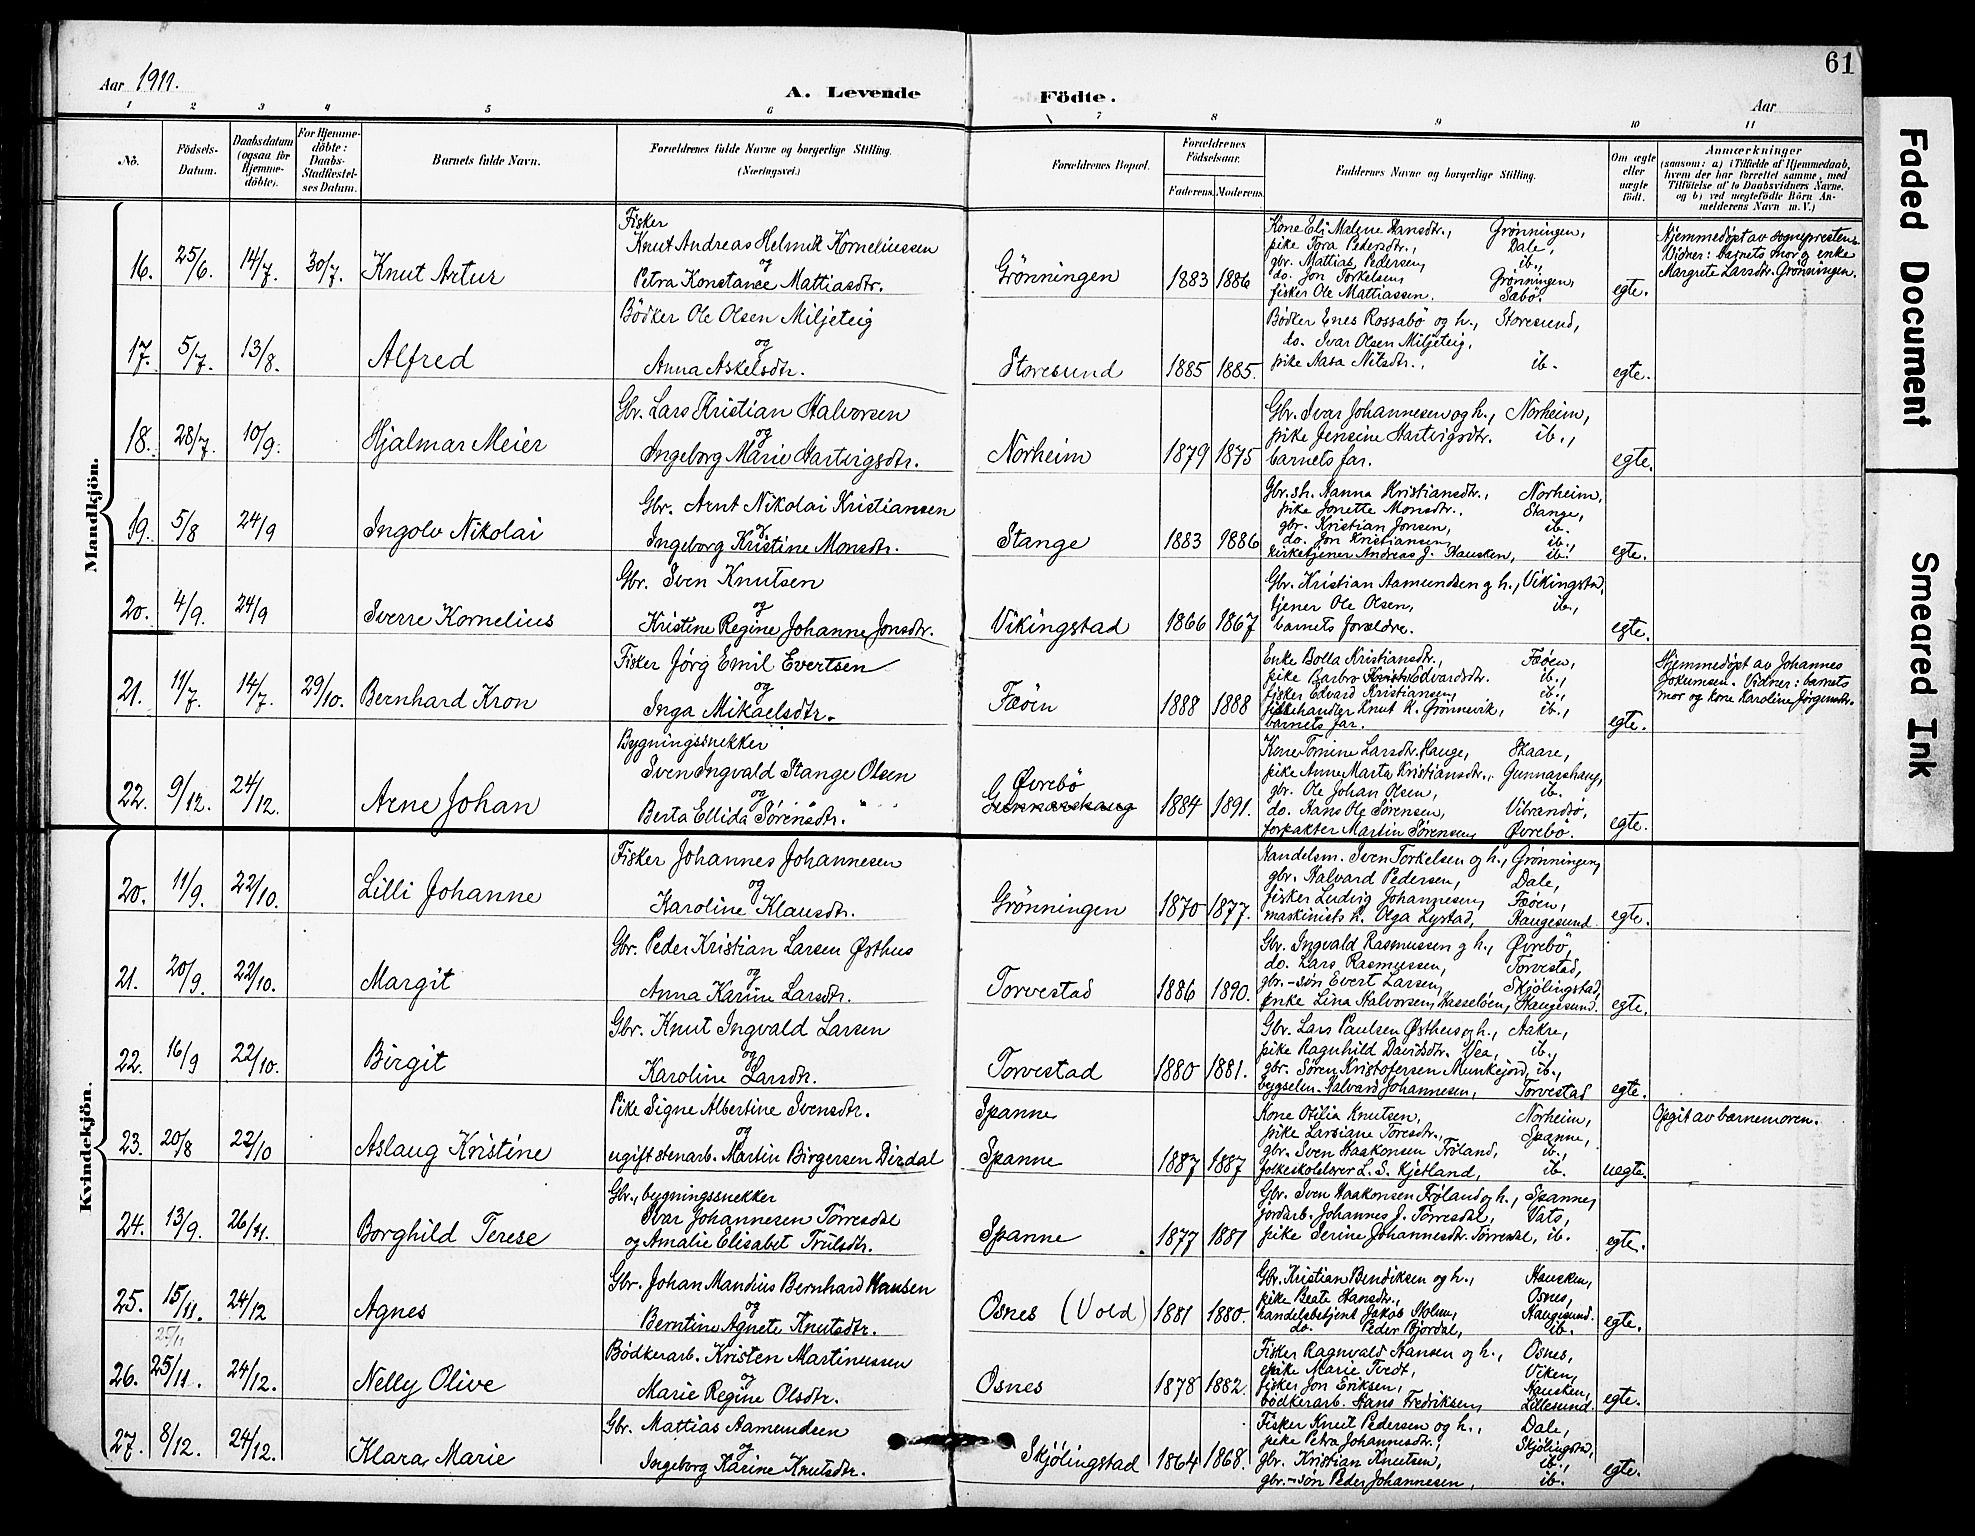 61
Aar 1911.
A. Levende Födte.
Aar
1 2 3 4 5 6 7 8 9 10 11
No.
Födsels-Datum.
Daabsdatum (ogsaa for Hjemme-döbte).
For Hjemme-döbte: Daabs-Stadfæstel-ses Datum.
Barnets fulde Navn.
Forældrenes fulde Navne og borgerlige Stilling. (Næringsvei.)
Forældrenes Bopæl.
Forældrenes Födselsaar.
Faderens. Moderens.
Faddernes Navne og borgerlige Stilling.
Om ægte eller uægte födt.
Anmærkninger
(saasom: a) i Tilfælde af Hjemmedaab, hvem der har forrettet samme, med Tilföielse af to Daabsvidners Navne, og b) ved uægtefödte Börn An-melderens Navn m. V.)
Mandkjön.
16. 25/6. 14/7. 30/7. Knut Artur
Fisker
Knut Andreas Helmik Korneliussen
og
Petra Konstance Mattiasdtr.
Grönningen 1883 1886
Kone Eli Malene Hansdtr., Grönningen,
pike Tora Pedersdtr., Dale,
gbr. Mattias Pedersen, ib.,
do. Jon Torkelsen, Grönningen,
fisker Ole Mattiassen. Sæbö.
egte.
Hjemmedöpt av sognepresten.
Vidner: barnets mor og enke
Margrete Larsdtr. Grönningen.
17. 5/7. 13/8. Alfred
Bödker Ole Olsen Miljeteig
og
Anna Askelsdtr.
Storesund 1885 1885.
Bödker Enes Rossabö og h., Storesund,
do. Ivar Olsen Miljeteig,
pike Aasa Nilsdtr., ib.
egte.
18. 28/7. 10/9. Hjalmar Meier
Gbr. Lars Kristian Halvorsen
og
Ingeborg Marie Hartvigsdtr.
Norheim 1879 1875
Gbr. Ivar Johannesen og h., Norheim,
pike Jensine Hartvigsdtr. ib.,
barnets far.
egte.
19. 5/8 24/9 Ingolv Nikolai
Gbr. Arnt Nikolai Kristiansen
og
Ingeborg Kristine Monsdtr.
Stange 1883 1886
Gbr.sh. Nanna Kristiansdtr., Norheim,
pike Jonette Monsdtr., Stange,
gbr. Kristian Jonsen, ib.
do. Jon Kristiansen, ib.,
kirketjener Andreas J. Hausken, ib.
egte.
20. 4/9. 24/9 Sverre Kornelius
Gbr. Sven Knutsen
og
Kristine Regine Johanne Jonsdtr.
Vikingstad 1866 1867
Gbr. Kristian Aamundsen og h., Vikingstad,
tjener Ole Olsen, ib.,
barnets forældre.
egte.
21. 11/7. 14/7. 29/10. Bernhard Kron
Fisker Jörg Emil Evertsen
og
Inga Mikaelsdtr.
Fæöen 1888 1888
Enke Bolla Kristiansdtr., Fæöen,
pike Barbro Edvardsdtr. ib.,
fisker Edvard Kristiansen, ib.,
fiskehandler Knut K. Grönnevik, ib.,
barnets far.
egte.
Hjemmedöpt av Johannes
Jokumsen. Vidner: barnets
mor og kone Karoline Jörgensdtr.
22. 9/12. 24/12. Arne Johan
Bygningssnekker
Sven Ingvald Stange Olsen
og
Berta Ellida Sörensdtr.
Övrebö
Gunnarshaug 1884 1891.
Kone Tomine Larsdtr. Hauge, Skaare,
pike Anne Marta Kristiansdtr., Gunnarshaug,
gbr. Ole Johan Olsen, ib.
do. Hans Ole Sörensen, Vibrandsö,
forpakter Martin Sörensen, Övrebö.
egte.
Kvindekjön.
20. 11/9. 22/10. Lilli Johanne
Fisker Johannes Johannesen
og
Karoline Klausdtr.
Grönningen 1870 1877.
Handelsm. Sven Torkelsen og h., Grönningen,
gbr. Halvard Pedersen, Dale,
fisker Ludvig Johannesen, Fæöen,
maskinists h. Olga Lystad, Haugesund.
egte.
21. 20/9. 22/10. Margit
Gbr. Peder Kristian Larsen Östhus
og
Anna Karine Larsdtr.
Torvestad 1886 1890.
Gbr. Ingvald Rasmussen og h., Övrebö,
do. Lars Rasmussen, Torvestad,
gbr.-sön Evert Larsen, Skjölingstad,
enke Lina Halvorsen, Hasselöen, Haugesund.
egte.
22. 16/9 22/10. Birgit
Gbr. Knut Ingvald Larsen
og
Karoline Larsdtr.
Torvestad 1880 1881.
Gbr. Lars Paulsen Östhus og h., Aakre,
pike Ragnhild Davidsdtr. Vea, ib.,
gbr. Sören Kristofersen Munkejord, ib.,
bygselm. Halvard Johannesen, Torvestad
egte.
23. 20/8 22/10 Aslaug Kristine
Pike Signe Albertine Svensdtr.
og
ugift stenarb. Martin Birgersen Dirdal
Spanne
Spanne 1887 1887
Kone Otilia Knutsen, Norheim,
pike Larsiane Toresdtr., Spanne,
gbr. Sven Haakonsen Fröland, ib.,
folkeskolelærer L. S. Kjetland, ib.
uegte.
Opgit av barnemoren.
24. 13/9. 26/11. Borghild Terese
Gbr., bygningssnekker
Ivar Johannesen Torresdal
og Amalie Elisabet Trulsdtr.
Spanne 1877 1881
Gbr. Sven Haakonsen Fröland og h., Spanne,
jordarb. Johannes J. Torresdal, Vats,
pike Serine Johannesdtr. Torresdal, ib.
egte.
25. 15/11. 24/12 Agnes
Gbr. Johan Mandius Bernhard Hansen
og
Berntine Agnete Knutsdtr.
Osnes (Vold) 1881 1880.
Gbr. Kristian Bendiksen og h., Hausken,
pike Beate Hansdtr., Osnes,
handelsbetjent Jakob Holm, Haugesund.
do. Peder Bjordal, ib.
egte.
25/11
26. 25/11. 24/12. Nelly Olive
Bödkerarb. Kristen Martinussen
og
Marie Regine Olsdtr.
Osnes 1878 1882.
Fisker Ragnvald Hansen og h., Osnes,
pike Marie Tvedt, Viken,
fisker Jon Eriksen, Hausken,
bödkerarb. Hans Fredriksen, Lillesund.
egte.
27. 8/12. 24/12. Klara Marie
Gbr. Mattias Aamundsen
og
Ingeborg Karine Knutsdtr.
Skjölingstad 1864 1868.
Fisker Knut Pedersen og h., Dale,
pike Petra Johannesdtr., Skjölingstad,
gbr. Kristian Knutsen, ib.,
gbr.-sön Peder Johannesen, ib.
egte.
Faded Document
Smeared Ink